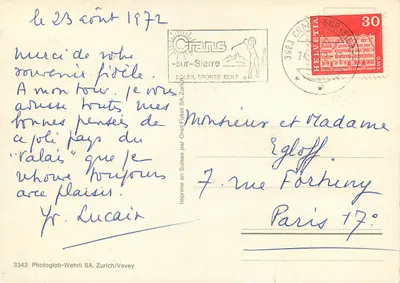 le 23 août 1972
Merci de votre
souvenir fidèle.
A mon tour, je vous
adresse toutes mes
bonnes pensées de
ce joli pays du
"Valais" que je
retrouve toujours
avec plaisir.
Yv. Lucain
3343 Photoglob-Wehrli SA, Zurich/Vevey
Imprimé en Suisse par Orell Füssli SA, Zurich
Crans
-sur-Sierre
SOLEIL SPORTS GOLF
3963 CRANS-SUR-SIERRE
HELVETIA
30
Monsieur et Madame
Egloff.
7. rue Fortuny
Paris 17e